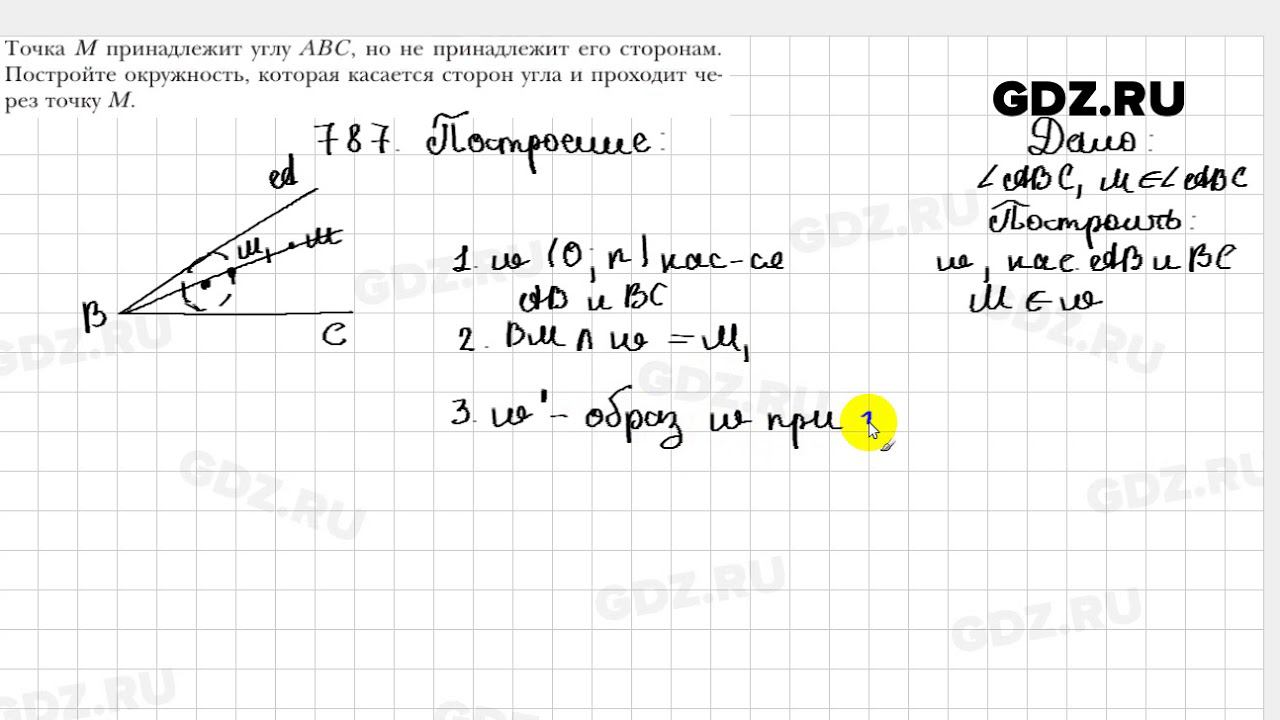 Точка M принадлежит углу ABC, но не принадлежит его сторонам.
Постройте окружность, которая касается сторон угла и проходит че-
рез точку M.
GDZ.RU
787. Построение:
Дано:
∠ABC, M∈∠ABC
Построить:
w, кас. AB и BC
M ∈ w
A
M₁ M
B
C
1. w (O; r) кас-ся
AB и BC
2. BM ∩ w = M₁
3. w' - образ w при
GDZ.RU
GDZ.RU
GDZ.RU
GDZ.RU
GDZ.RU
GDZ.RU
GDZ.RU
GDZ.RU
GDZ.RU
GDZ.RU